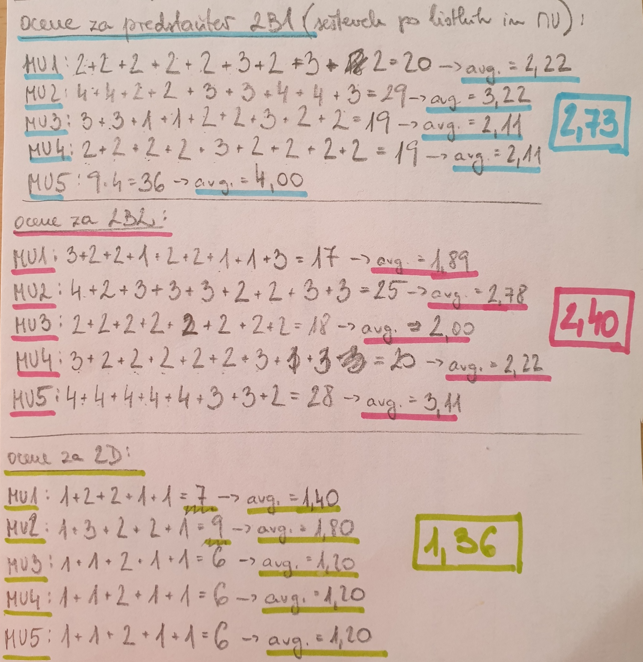 ocene za predstavitev 2B1 (seštevek po listkih in MU):
MU1: 2+2+2+2+2+3+2+3+2=20 → avg. = 2,22
MU2: 4+4+2+2+3+3+4+4+3=29 → avg. = 3,22
MU3: 3+3+1+1+2+2+3+2+2=19 → avg. = 2,11
2,73
MU4: 2+2+2+2+3+2+2+2+2=19 → avg. = 2,11
MU5: 9·4=36 → avg. = 4,00
ocene za 2B2:
MU1: 3+2+2+1+2+2+1+1+3=17 → avg. = 1,89
MU2: 4+2+3+3+3+2+2+3+3=25 → avg. = 2,78
MU3: 2+2+2+2+2+2+2+2+2=18 → avg. = 2,00
2,40
MU4: 3+2+2+2+2+2+3+1+3=20 → avg. = 2,22
MU5: 4+4+4+4+4+3+3+2=28 → avg. = 3,11
ocene za 2D:
MU1: 1+2+2+1+1=7 → avg. = 1,40
MU2: 1+3+2+2+1=9 → avg. = 1,80
1,36
MU3: 1+1+2+1+1=6 → avg. = 1,20
MU4: 1+1+2+1+1=6 → avg. = 1,20
MU5: 1+1+2+1+1=6 → avg. = 1,20